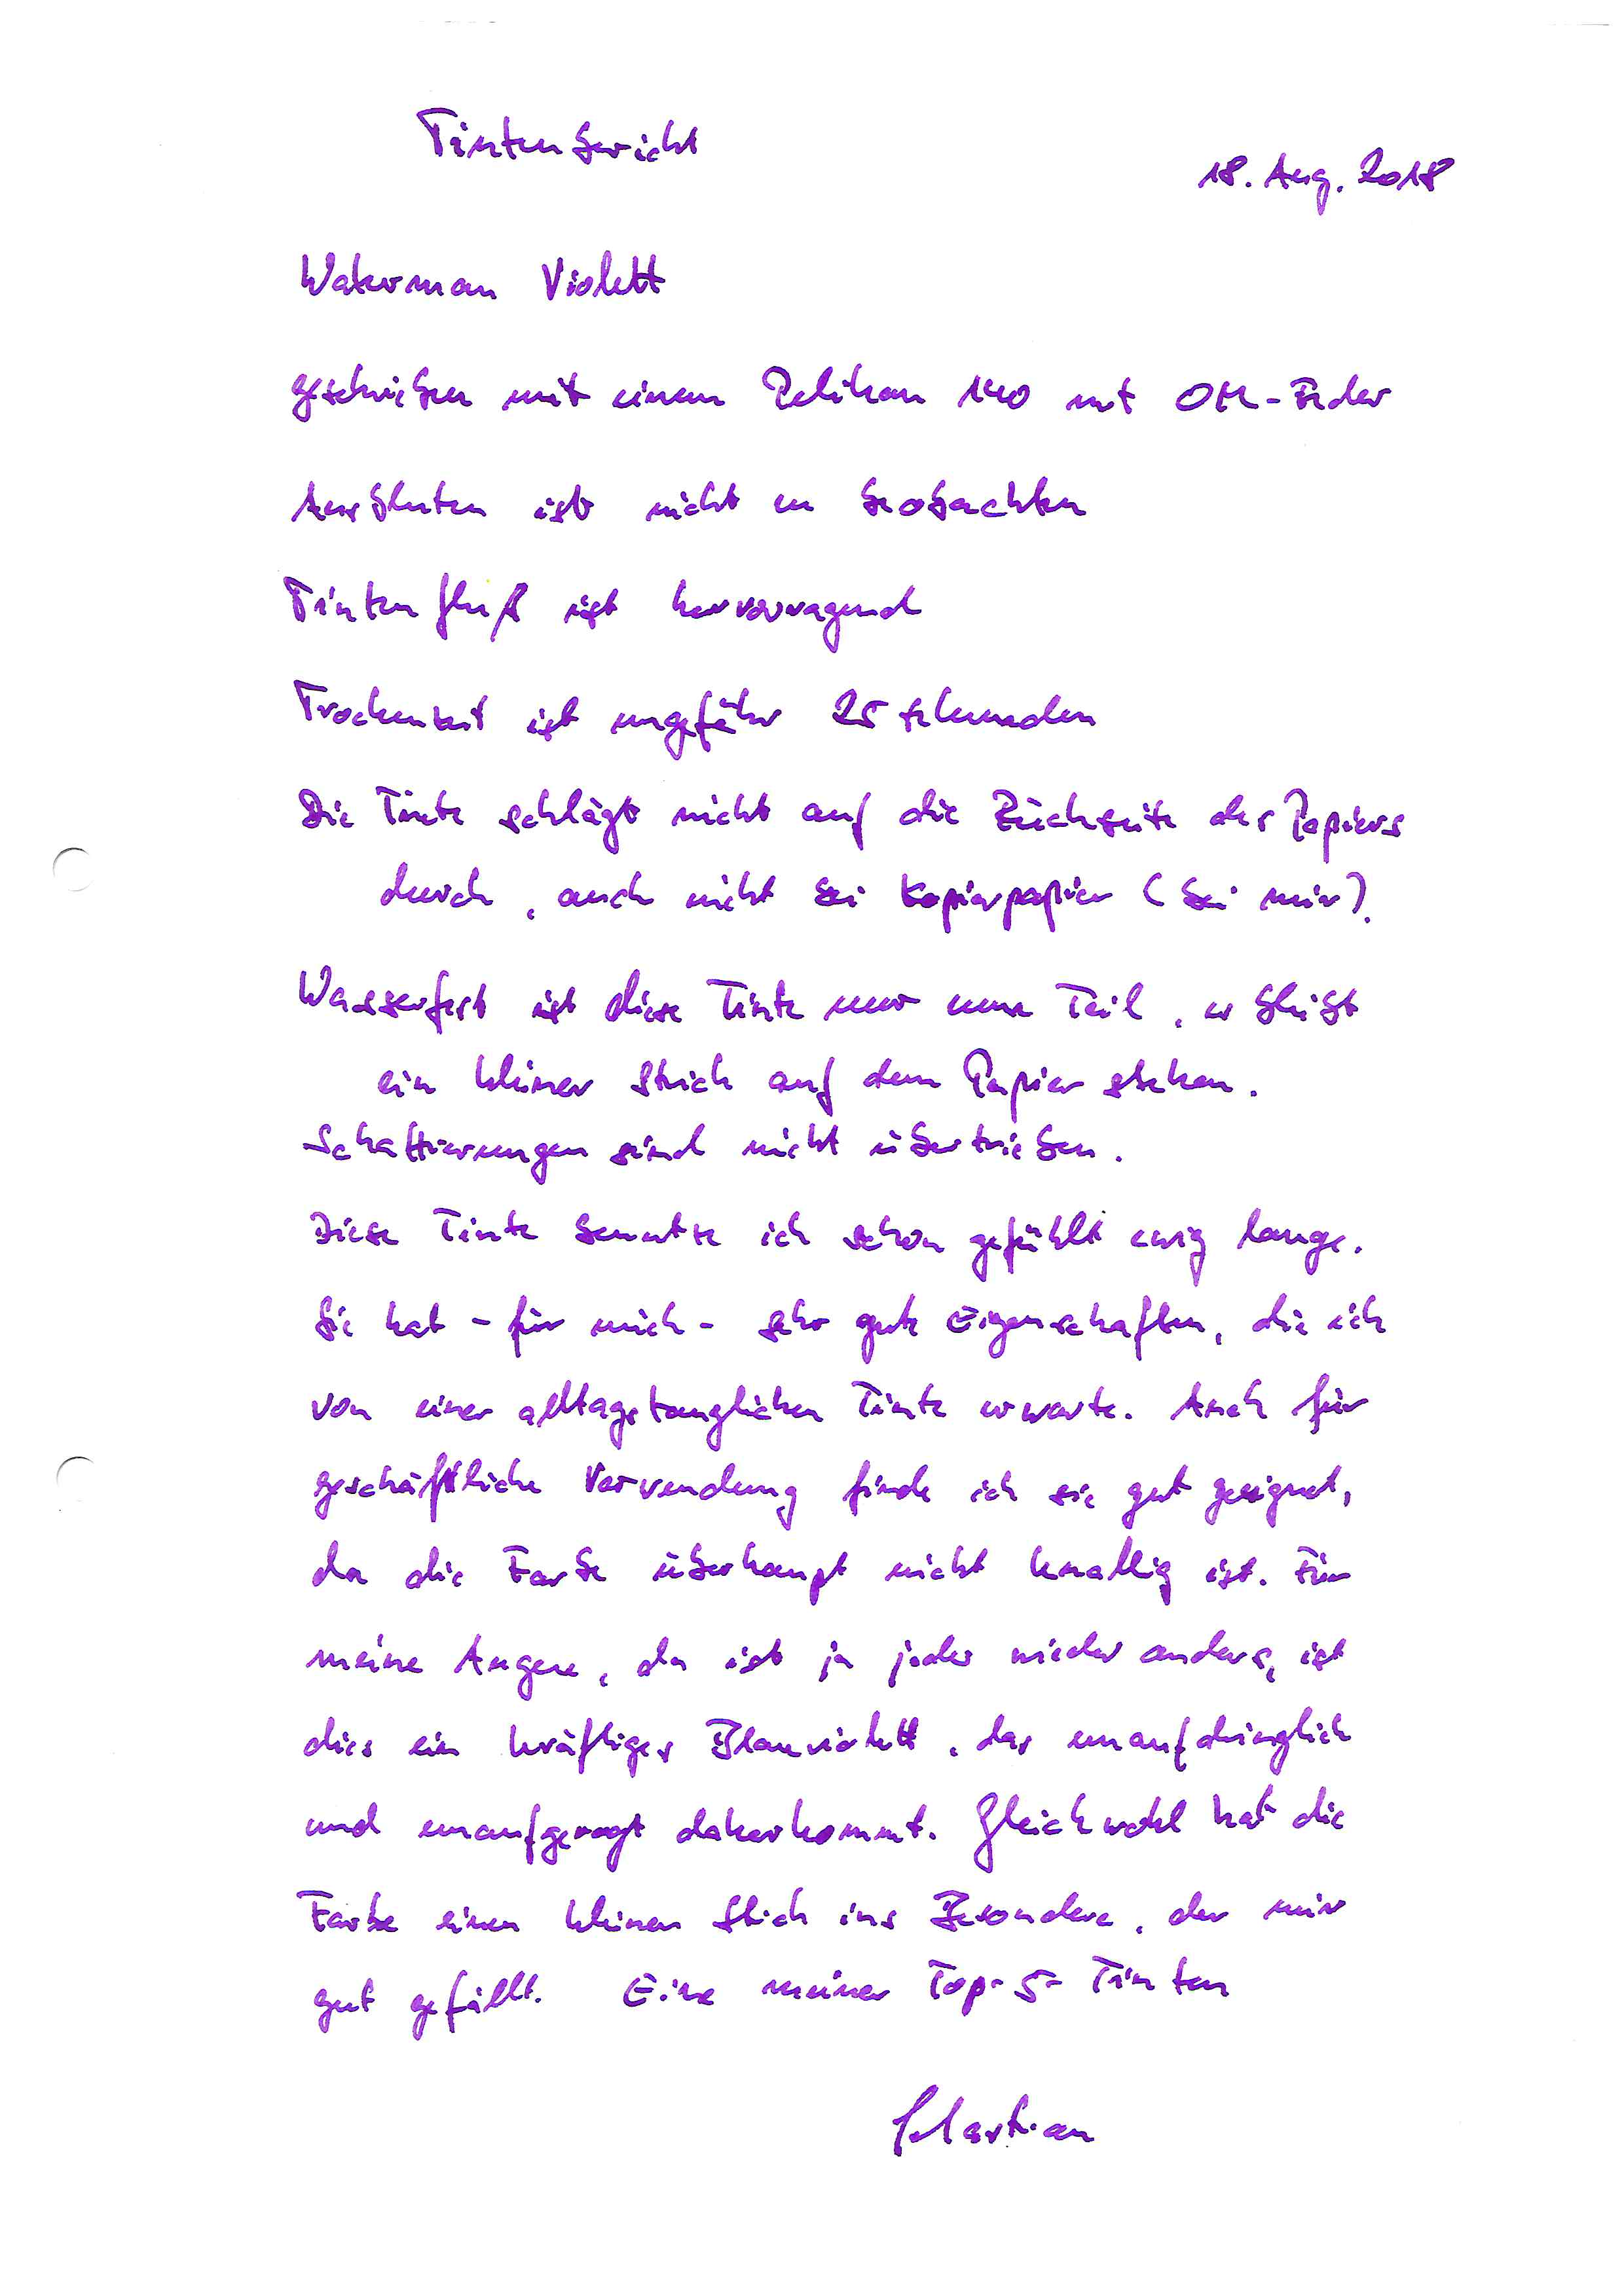 Tintenbericht
18. Aug. 2018
Waterman Violett
geschrieben mit einem Pelikan 140 mit OM-Feder
Ausbluten ist nicht zu beobachten
Tintenfluß ist hervorragend
Trockenzeit ist ungefähr 25 Sekunden
Die Tinte schlägt nicht auf die Rückseite des Papiers
durch, auch nicht bei Kopierpapier (bei mir).
Wasserfest ist diese Tinte nur zum Teil, es bleibt
ein kleiner Strich auf dem Papier stehen.
Schattierungen sind nicht übertrieben.
Diese Tinte benutze ich schon gefühlt ewig lange.
Sie hat - für mich - sehr gute Eigenschaften, die ich
von einer alltagstauglichen Tinte erwarte. Auch für
geschäftliche Verwendung finde ich sie gut geeignet,
da die Farbe überhaupt nicht knallig ist. Für
meine Augen, da ist ja jeder wieder anders, ist
dies ein kräftiges Blauviolett, das unaufdringlich
und unaufgeregt daherkommt. Gleichwohl hat die
Farbe einen kleinen Stich ins Besondere, der mir
gut gefällt. Eine meiner Top-5-Tinten
Sebastian